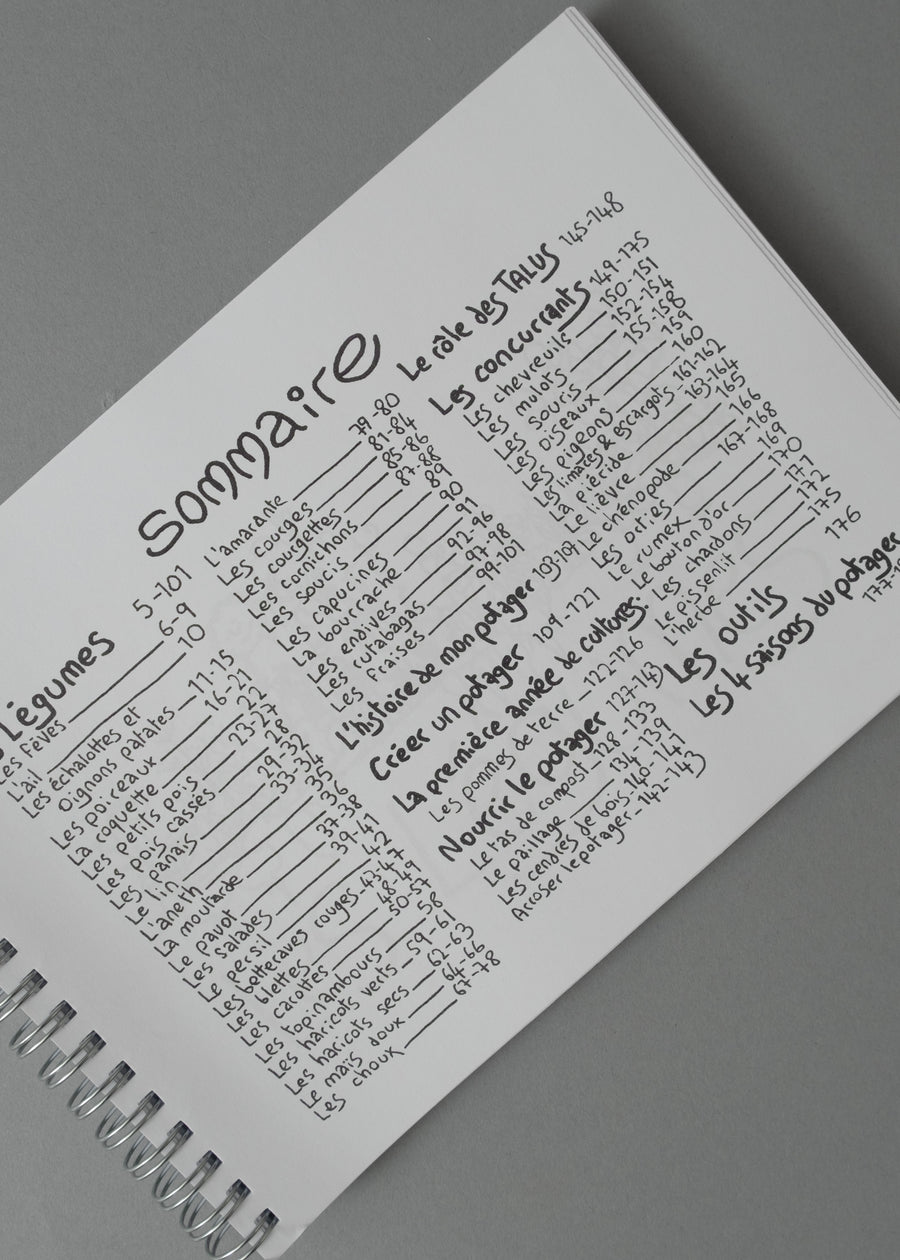 Sommaire
Légumes 5-101
Les fèves 6-9
L'ail 10
Les échalottes et
oignons patates 11-15
Les poireaux 16-21
La roquette 22
Les petits pois 23-27
Les pois cassés 28
Les panais 29-32
Le lin 33-34
L'aneth 35
La moutarde 36
Le pavot 37-38
Les salades 39-41
Le persil 42
Les betteraves rouges 43-47
Les blettes 48-49
Les carottes 50-57
Les topinambours 58
Les haricots verts 59-61
Les haricots secs 62-63
Le maïs doux 64-66
Les choux 67-78
L'amarante 79-80
Les courges 81-84
Les courgettes 85-86
Les cornichons 87-88
Les soucis 89
Les capucines 90
La bourrache 91
Les endives 92-96
Les rutabagas 97-98
Les fraises 99-101
L'histoire de mon potager 103-107
Créer un potager 109-121
La première année de cultures.
Les pommes de terre 122-126
Nourrir le potager 127-143
Le tas de compost 128-133
Le paillage 134-139
Les cendres de bois 140-141
Arroser le potager 142-143
Le rôle des TALUS 145-148
Les concurrants 149-175
Les chevreuils 150-151
Les mulots 152-154
Les souris 155-158
Les oiseaux 159
Les pigeons 160
Les limaces & escargots 161-162
La piéride 163-164
Le lièvre 165
Le chénopode 166
Les orties 167-168
Le rumex 169
Le bouton d'or 170
Les chardons 171
Le pissenlit 172
L'herbe 175
Les outils 176
Les 4 saisons du potager